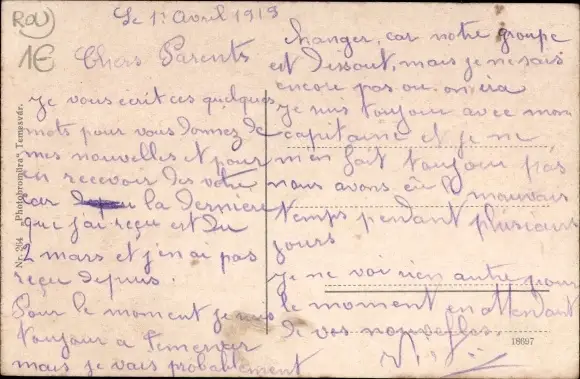 ROU
1€
Le 1er Avril 1919
Chers Parents
Je vous écrit ces quelques
mots pour vous donnez de
mes nouvelles et pour
en recevoir des votre
car la dernière
que j'ai reçu est du
2 mars et j'en ai pas
reçu depuis.
Pour le moment je suis
toujour a Temesvar
mais je vais probablement
changer, car notre groupe
est dissout, mais je ne sais
encore pas ou on ira
Je suis toujour avec mon
capitaine et je ne
m'en fait toujour pas
nous avons eû le mauvais
temps pendant plusieurs
jours
Je ne voi rien autre pour
le moment en attendant
de vos nouvelles.
Nr. 264 „Photobroműtra“ Temesvár.
18697